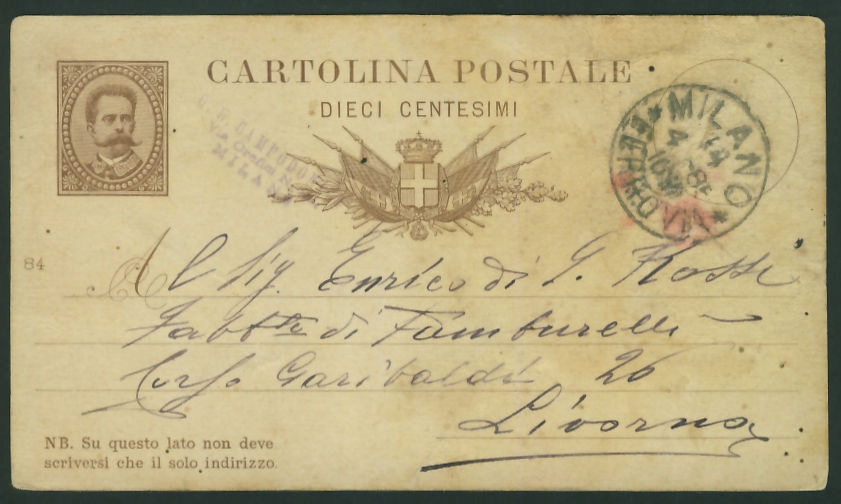 CARTOLINA POSTALE
DIECI CENTESIMI
CAMPODON
Via
MILAN
MILANO
FERROVIA
84
Al Sig. Enrico di G. Rossi
Fabb.te di Tamburelli
Corso Garibaldi 26
Livorno
NB. Su questo lato non deve
scriversi che il solo indirizzo.